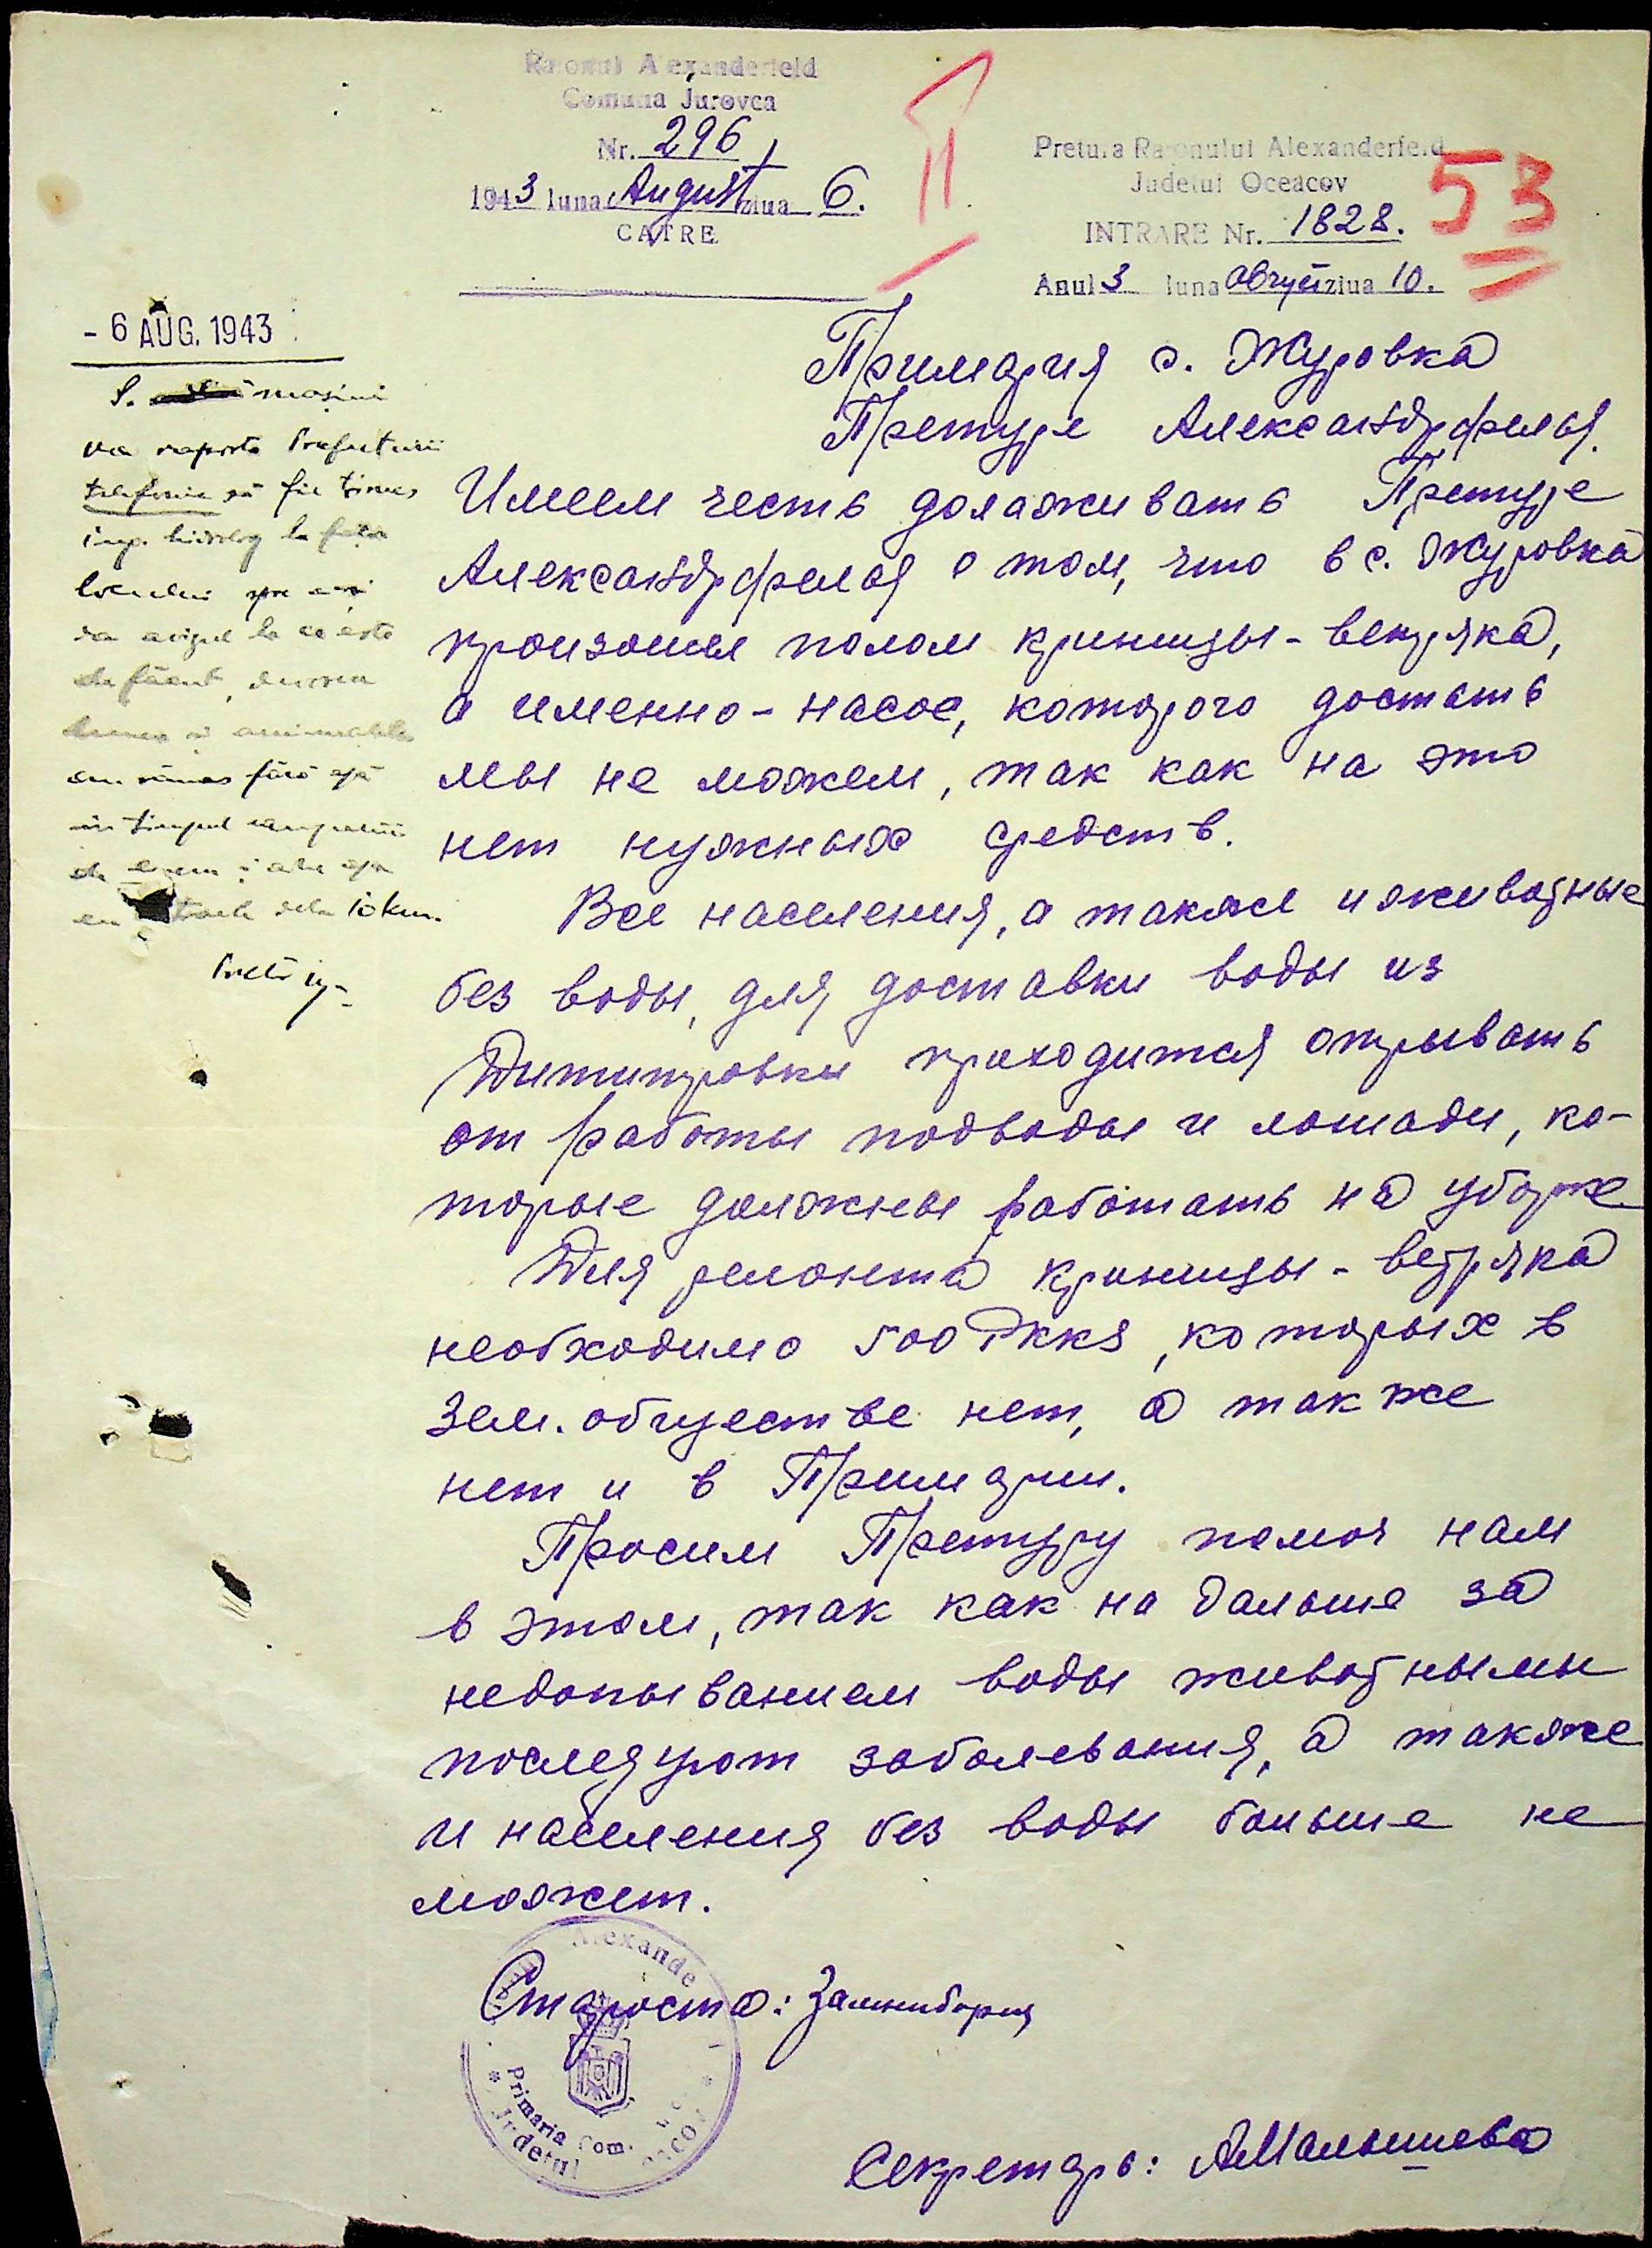 Raionul Alexanderfeld
Comuna Jurovca
Nr. 296
1943 luna August ziua 6.
CATRE
Pretura Raionului Alexanderfeld
Judetul Oceacov
INTRARE Nr. 1828.
Anul 3 luna август ziua 10.
53
- 6 AUG. 1943
va raporta Prefecturii
telefonic să fie trimes
ing. hidrolog la fața
locului spre a-și
da avizul la ce este
de făcut,
și animalele
au rămas fără apă
în timpul campaniei
de
dela 10 km.
Примария с. Журовка
Претуре Александрфельд.
Имеем честь долаживать Претуре
Александрфельд о том, что в с. Журовка
произошел полом криницы-ветряка,
а именно - насос, которого достать
мы не можем, так как на это
нет нужных средств.
Все населения, а также и животные
без воды, для доставки воды из
Дмитировки приходится отрывать
от работы подводы и лошади, ко-
торые должны работать на уборке
Для ремонта криницы-ветряка
необходимо 500 РККS, которых в
Зем. обществе нет, а так же
нет и в Примарии.
Просим Претуру помоч нам
в этом, так как на дальше за
недопыванием воды животными
последуют заболевания, а также
и населения без воды больше не
может.
Староста:
Секретарь: АМалышева
Alexande
Primaria Com.
Judetul